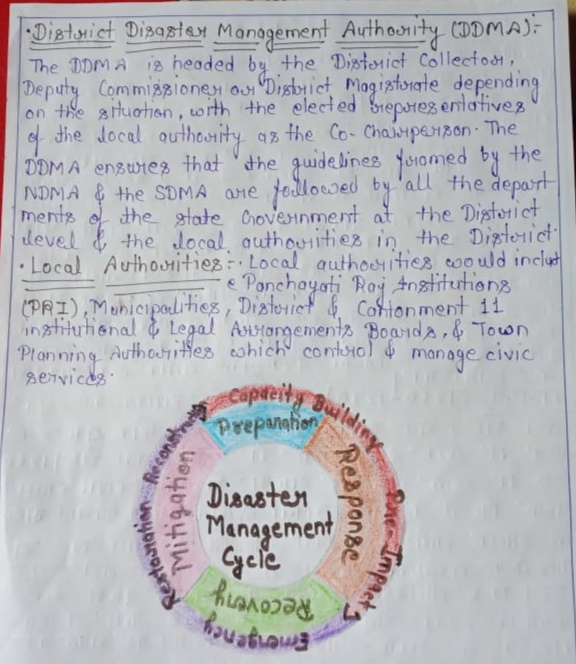 · District Disaster Management Authority (DDMA):-
The DDMA is headed by the District Collector,
Deputy Commissioner or District Magistrate depending
on the situation, with the elected representatives
of the local authority as the Co-Chairperson. The
DDMA ensures that the guidelines framed by the
NDMA & the SDMA are followed by all the depart
ments of the state Government at the District
level & the local authorities in the District.
· Local Authorities:- Local authorities would includ
e Panchayati Raj Institutions
(PRI), Municipalities, District & Cantonment 11
institutional & Legal Arrangements Boards, & Town
Planning Authorities which control & manage civic
services.
Capacity Building
Preparation
Response
Pre-Impact
Disaster
Management
Cycle
Mitigation
Restoration Reconstruction
Recovery
Emergency